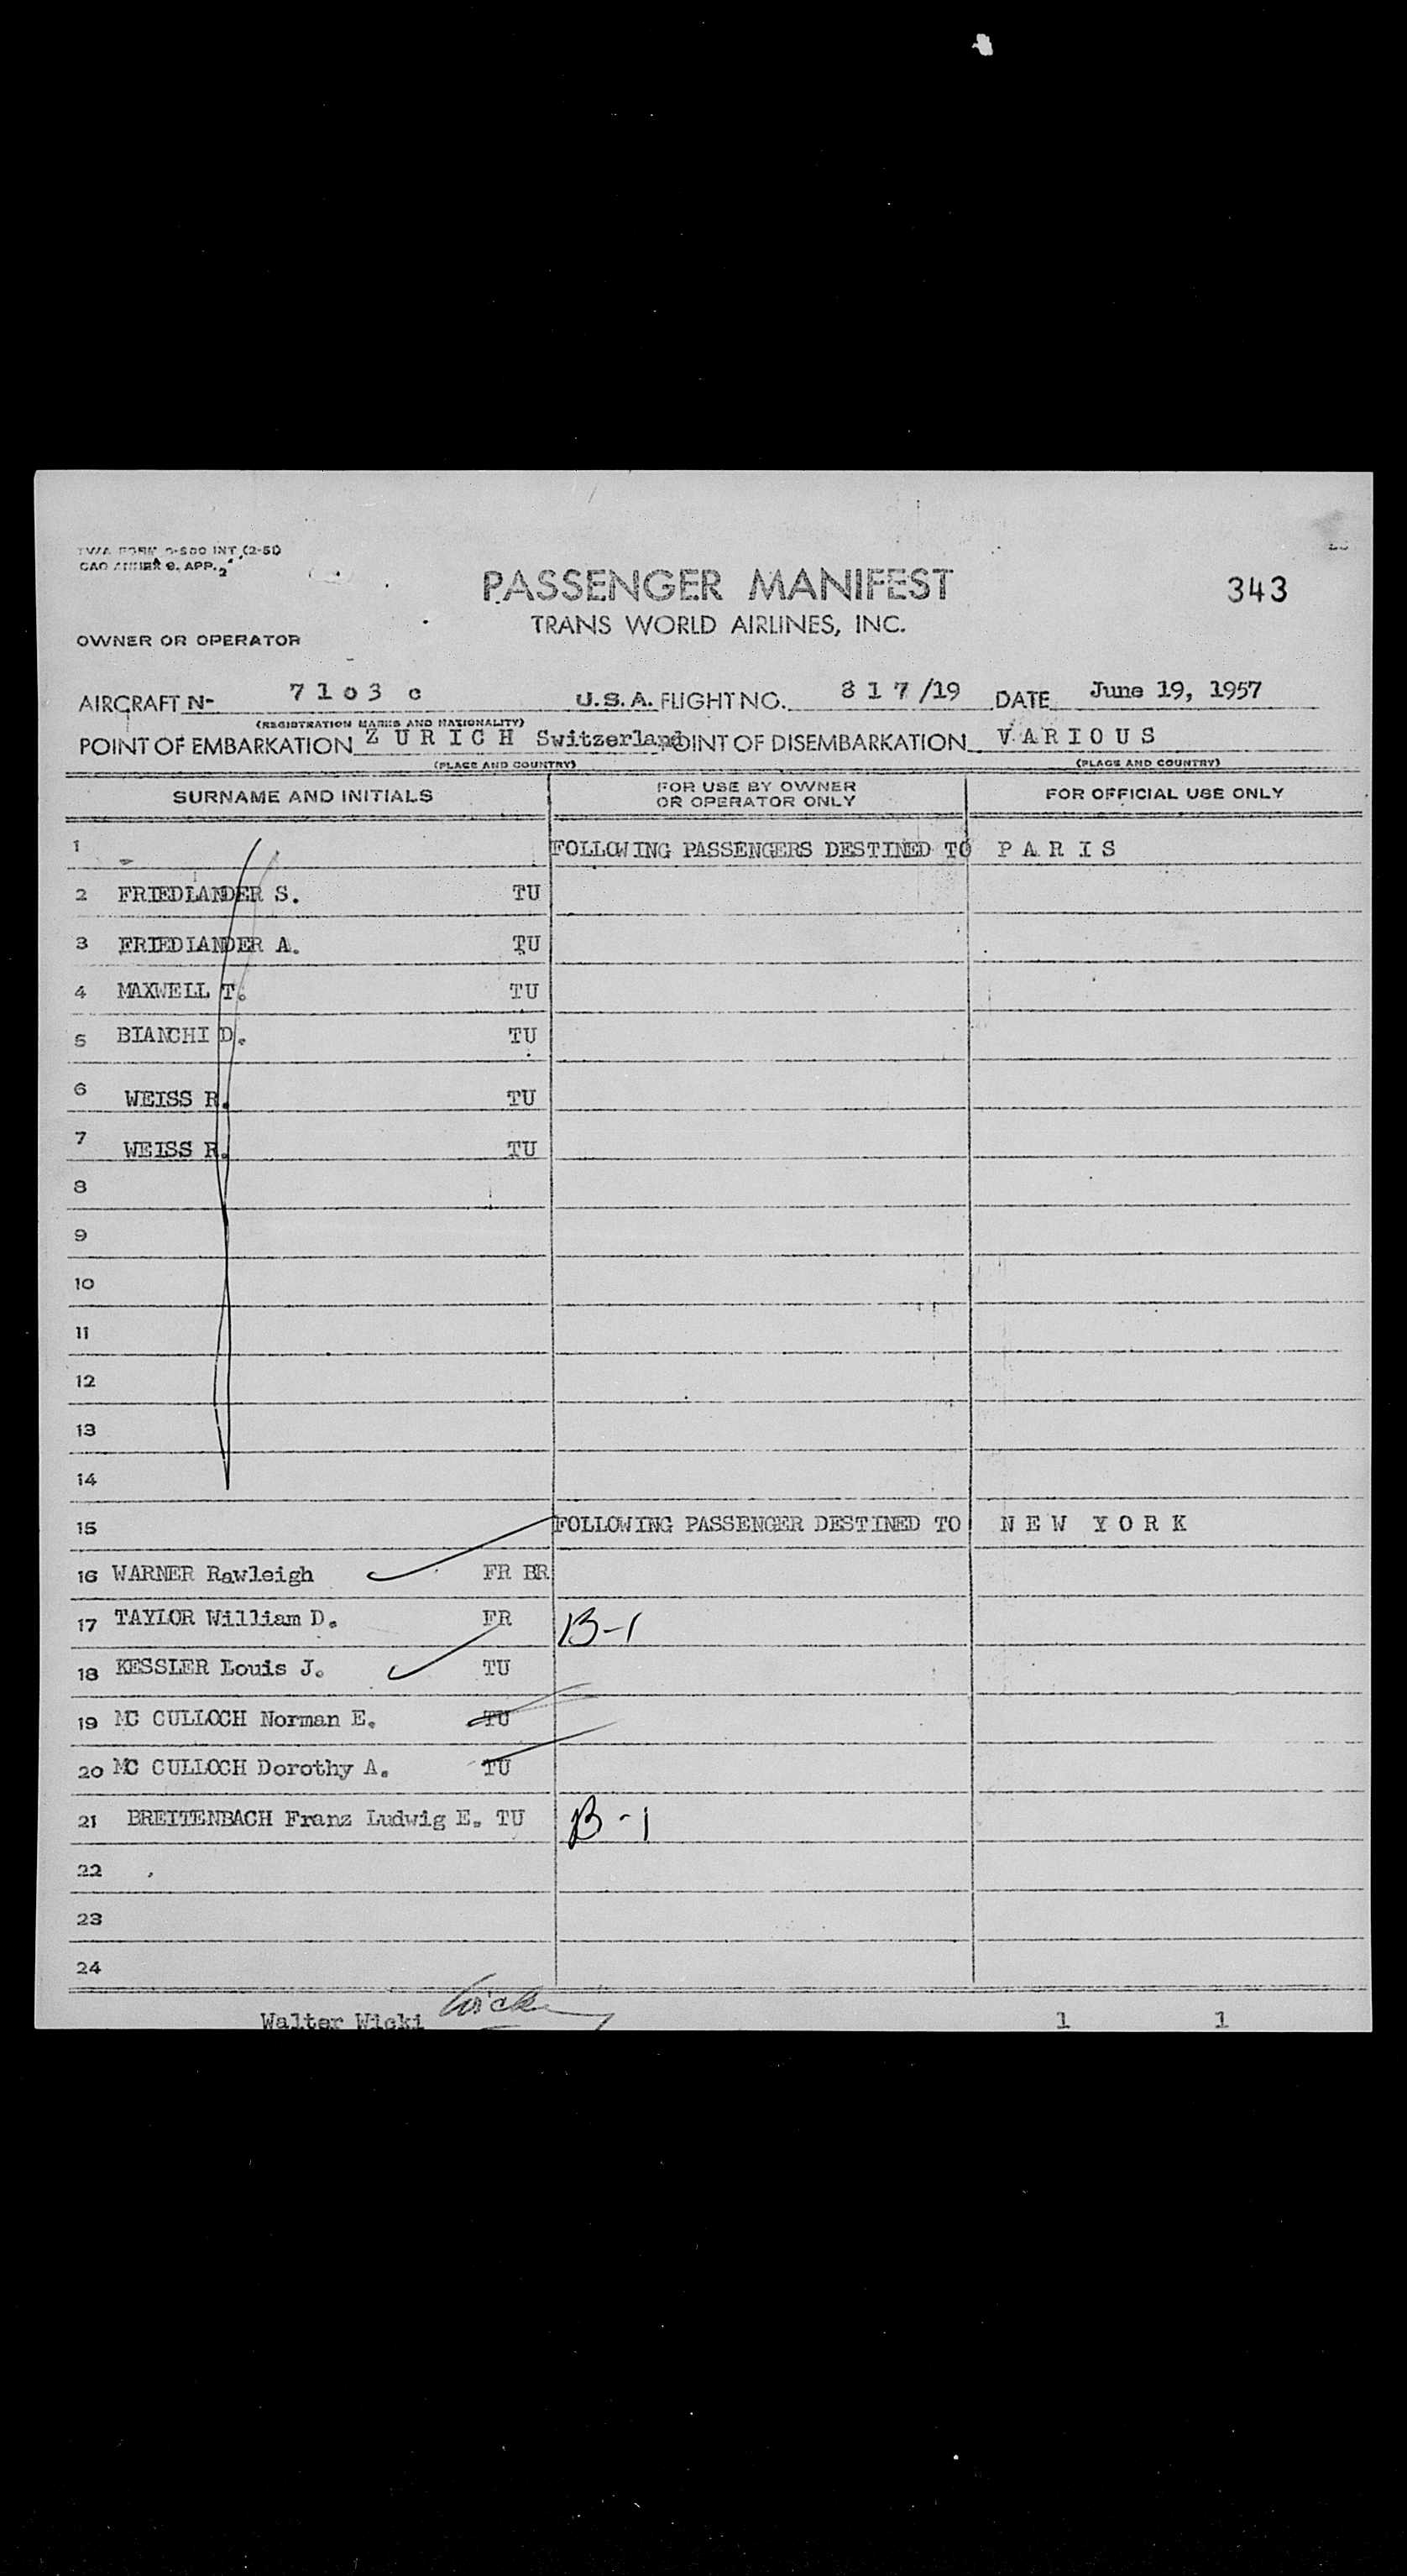 TWA FORM INT (2-51)
CAO ANNEX 9, APP. 2
PASSENGER MANIFEST
343
TRANS WORLD AIRLINES, INC.
OWNER OR OPERATOR
AIRCRAFT N- 7 1 0 3 c U.S.A. FLIGHT NO. 8 1 7 /19 DATE June 19, 1957
(REGISTRATION MARKS AND NATIONALITY)
POINT OF EMBARKATION Z U R I C H Switzerland POINT OF DISEMBARKATION V A R I O U S
(PLACE AND COUNTRY) (PLACE AND COUNTRY)
SURNAME AND INITIALS FOR USE BY OWNER OR OPERATOR ONLY FOR OFFICIAL USE ONLY
1 FOLLOWING PASSENGERS DESTINED TO P A R I S
2 FRIEDLANDER S. TU
3 FRIEDLANDER A. TU
4 MAXWELL T. TU
5 BIANCHI D. TU
6 WEISS R. TU
7 WEISS R. TU
8
9
10
11
12
13
14
15 FOLLOWING PASSENGER DESTINED TO N E W Y O R K
16 WARNER Rawleigh FR BR
17 TAYLOR William D. FR B-1
18 KESSLER Louis J. TU
19 MC CULLOCH Norman E. TU
20 MC CULLOCH Dorothy A. TU
21 BREITENBACH Franz Ludwig E. TU B-1
22
23
24
Walter Wicki Wicki 1 1